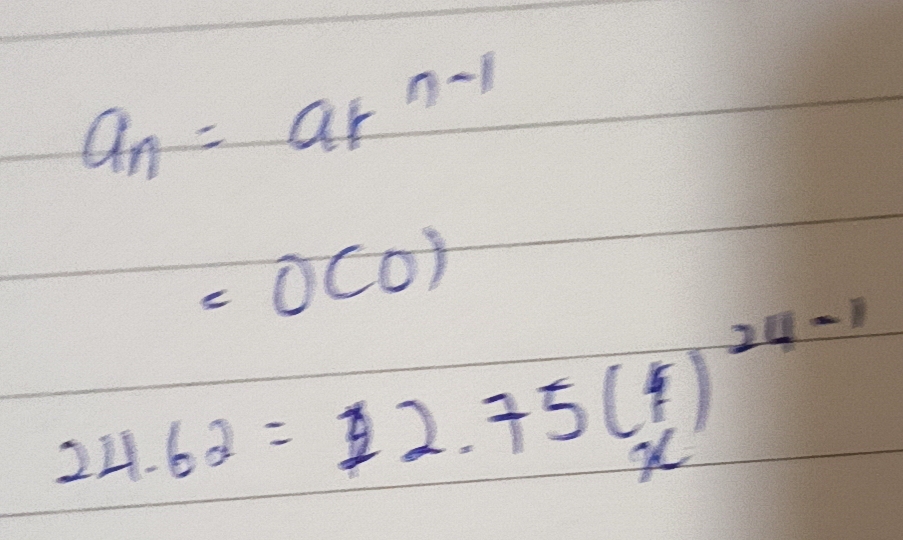 aₙ = arⁿ⁻¹
= 0(0)
24.62 = 12.75(r)²⁴⁻¹
x